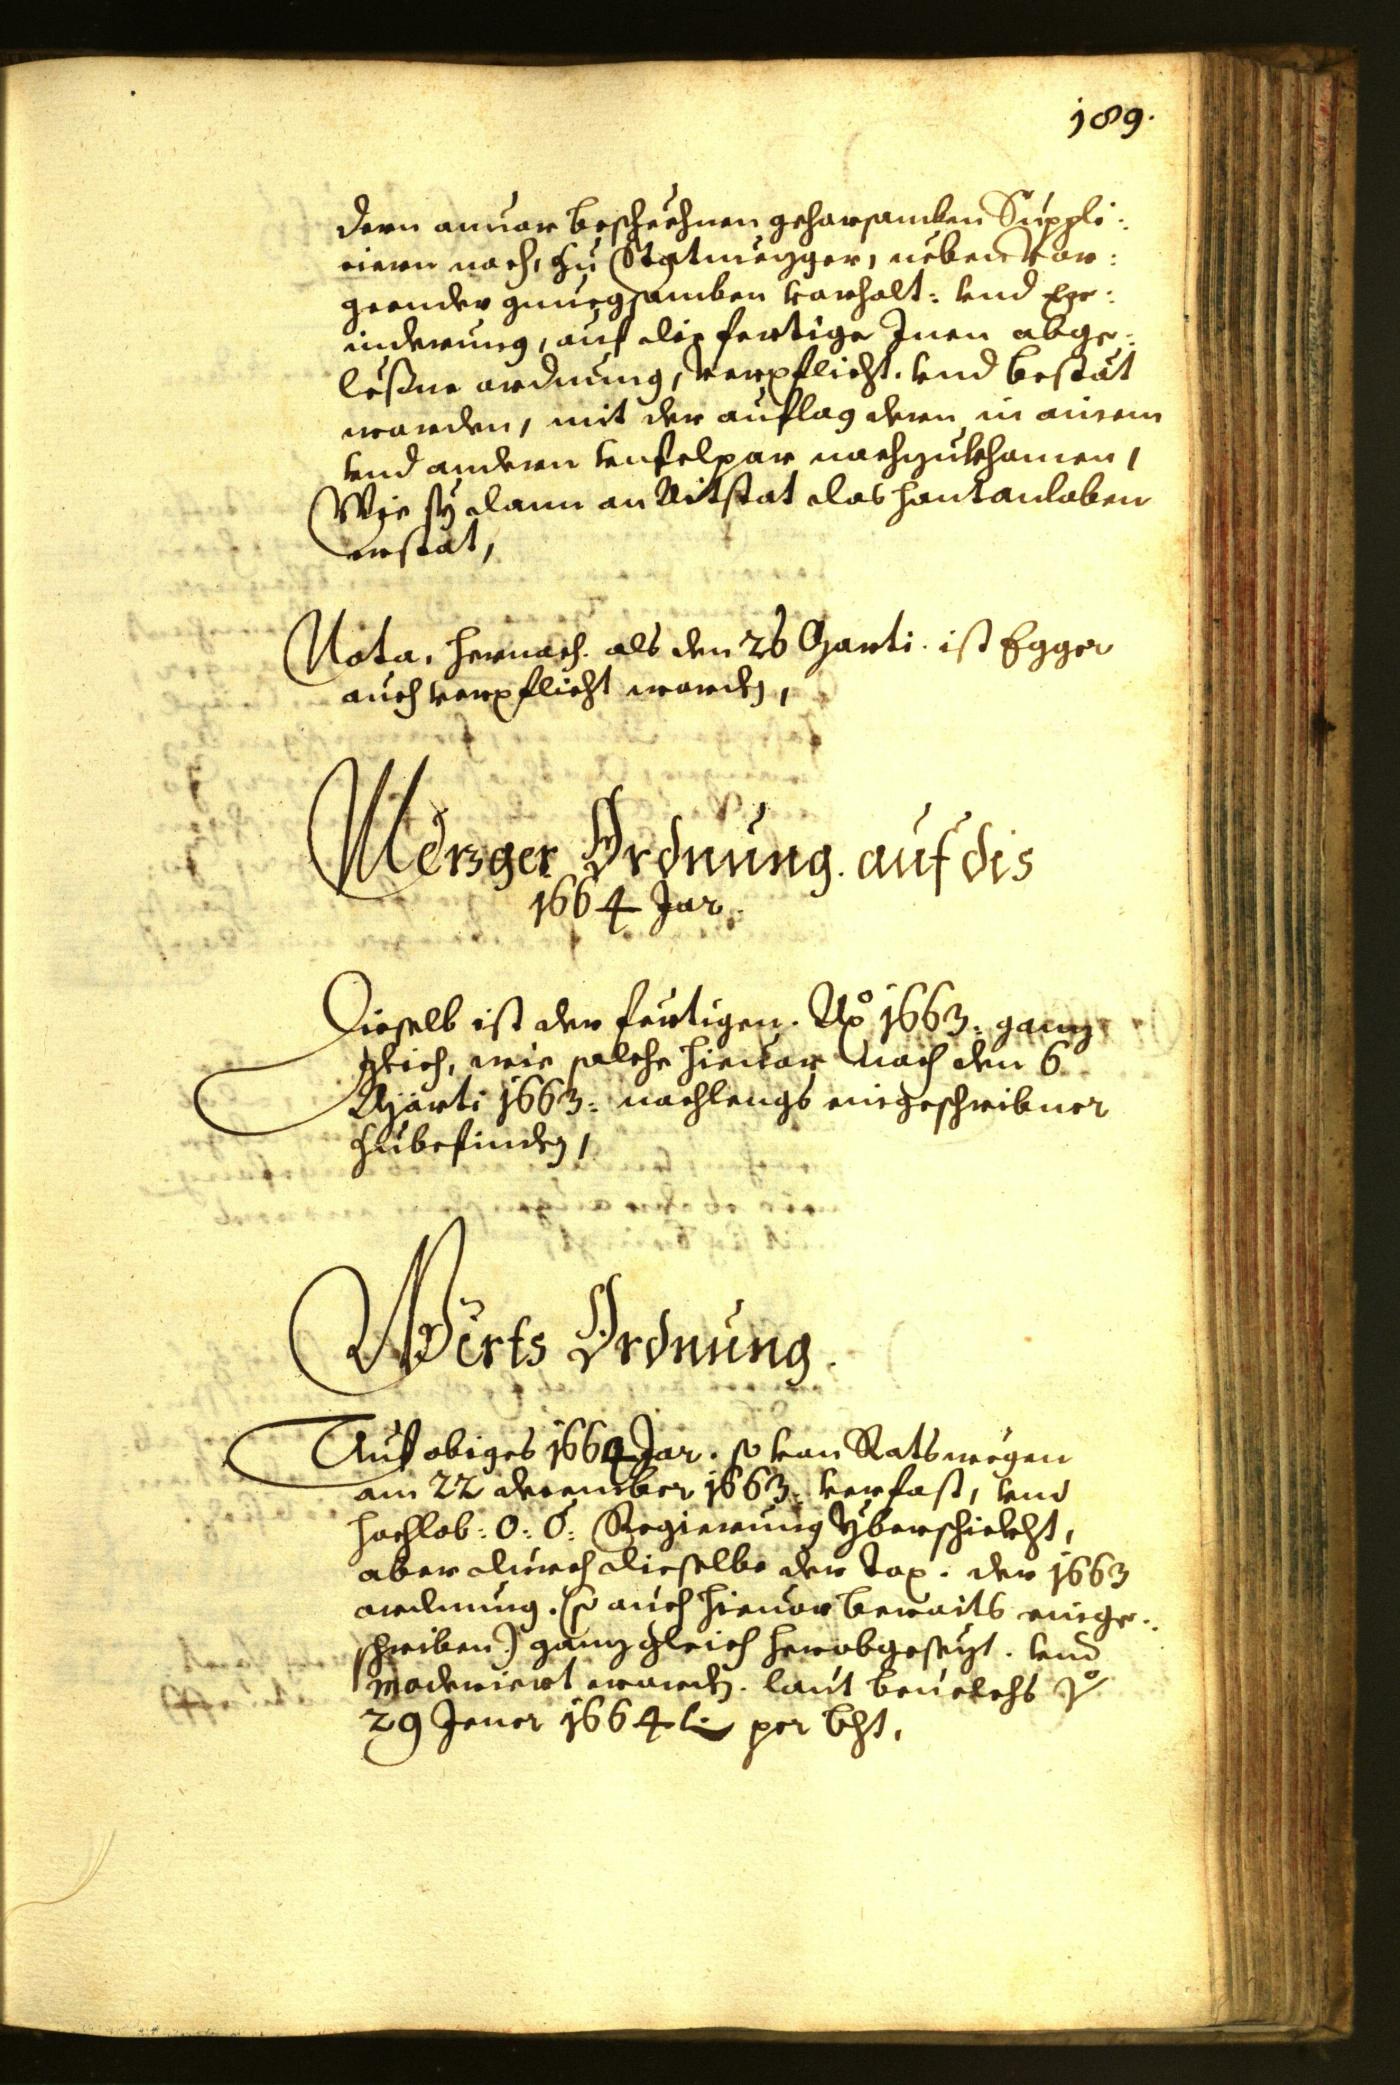 189.
dern anuor beschechnen gehorsamben Suppli:
ciern nach, zu Statmezger, neben vor:
geender gnuegsamben vorhalt: vnd Er:
inderung, auf die fertige Inen abge:
leßne ordnung, verpflicht. vnd bestät
worden, mit der auflag deren in ainem
vnd andern vnfelpar nachzukhomen,
Wie sy dann an Aitstat das hantanloben
erstat,
Nota. hernach. als den 26 Marti. ist Egger
auch verpflicht worden,
Mezger Ordnung. auf dis
1664 Jar.
Dieselb ist der fertigen. Ao 1663. ganz
gleich, wie solche hieuor nach den 6
Marti 1663: nachlengs eingeschribner
zubefinden,
Wirts Ordnung.
Auf obiges 1664 Jar. so von Rats wegen
am 22 december 1663. verfast, vnd
hochlob: O: Ö: Regierung yberschickht,
aber durch dieselbe der Tax. der 1663
ordnung. (so auch hieuor beraits einge:
schriben) ganz gleich herabgesezt. vnd
moderiert worden. laut beuelchs
29 Jener 1664 per